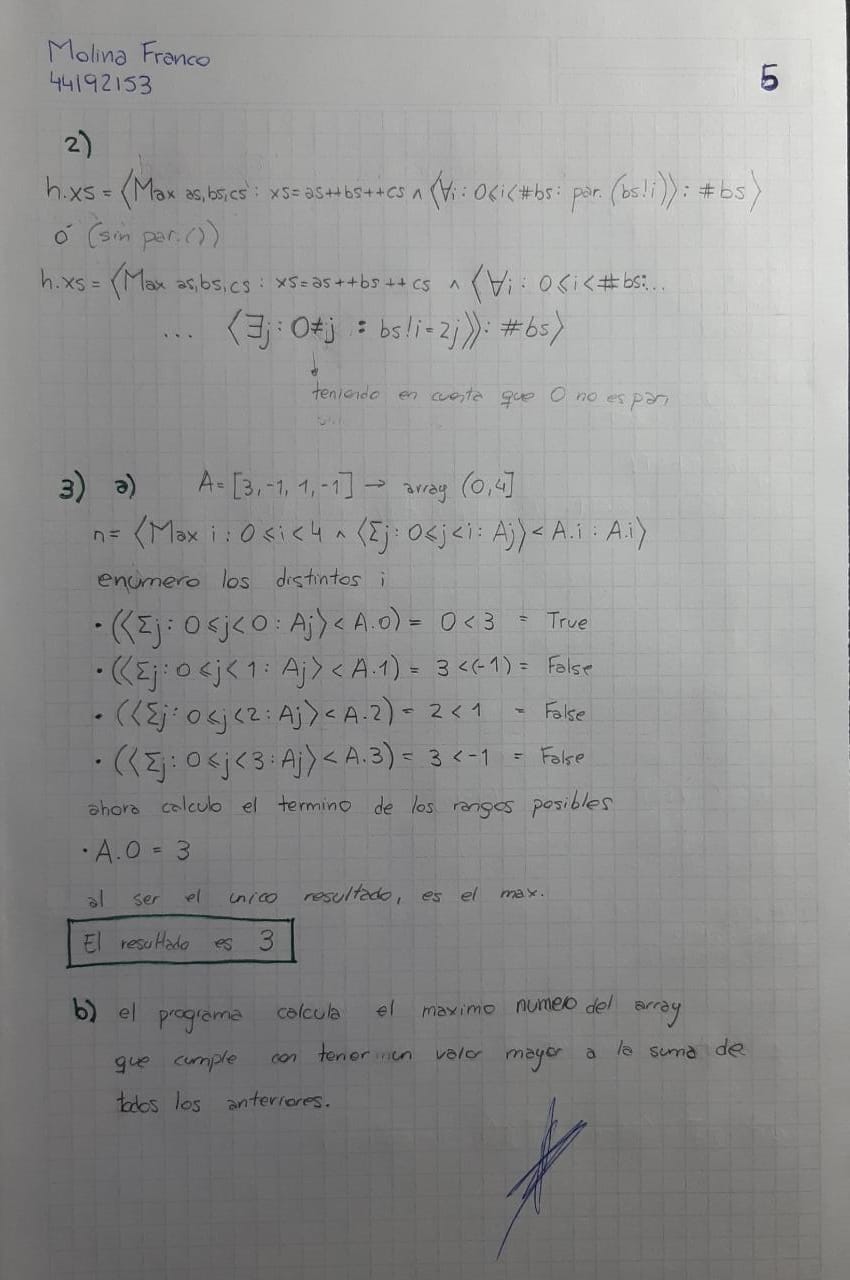 Molina Franco
44192153
5
2)
h.xs = ⟨Max as,bs,cs : xs=as++bs++cs ∧ ⟨∀i : 0⩽i<#bs : par.(bs!i)⟩ : #bs⟩
ó (sin par.())
h.xs = ⟨Max as,bs,cs : xs=as++bs++cs ∧ ⟨∀i : 0⩽i<#bs:...
... ⟨∃j : 0≠j : bs!i=2j⟩⟩ : #bs⟩
↓
teniendo en cuenta que 0 no es par,
3) a) A=[3,-1,1,-1] → array (0,4]
n= ⟨Max i : 0⩽i<4 ∧ ⟨Σj : 0⩽j<i : Aj⟩ < A.i : A.i⟩
enúmero los distintos i
• (⟨Σj : 0⩽j<0 : Aj⟩ < A.0) = 0<3 = True
• (⟨Σj : 0⩽j<1 : Aj⟩ < A.1) = 3<(-1) = False
• (⟨Σj : 0⩽j<2 : Aj⟩ < A.2) = 2<1 = False
• (⟨Σj : 0⩽j<3 : Aj⟩ < A.3) = 3<-1 = False
ahora calculo el termino de los rangos posibles
• A.0 = 3
al ser el unico resultado, es el max.
El resultado es 3
b) el programa calcula el maximo numero del array
que cumple con tener un valor mayor a la suma de
todos los anteriores.